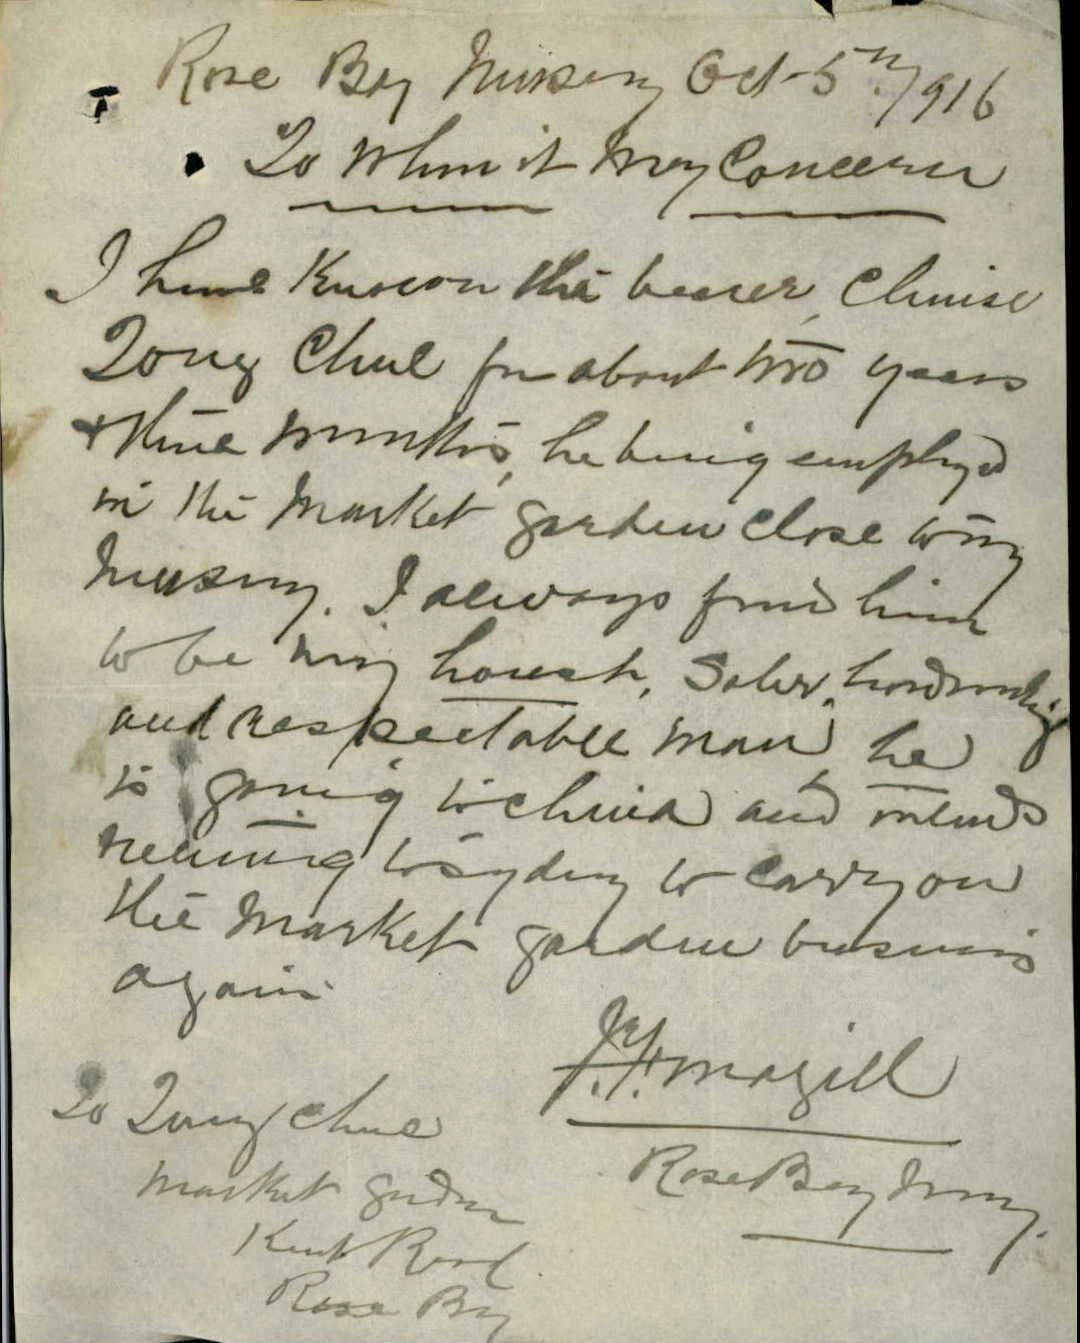 Rose Bay Nursery Oct 5th 1916
To Whom it May Concern
I have known the bearer, Chinise
Tong Chue for about two years
+ three months, he being employed
in the Market garden close to my
Nursery. I always found him
to be very honest, Sober, hardworking
and respectable man, he
is going to China and intends
returning to Sydney to carry on
the Market garden business
again.
Magill
Rose Bay Nursery.
To Tong Chue
Market Garden
Kent Road
Rose Bay